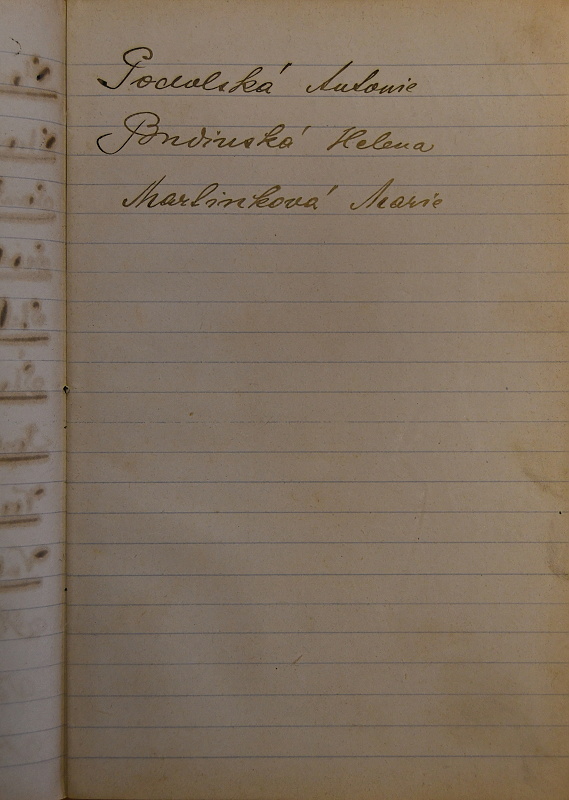 Podolská Antonie
Budinská Helena
Martinková Marie